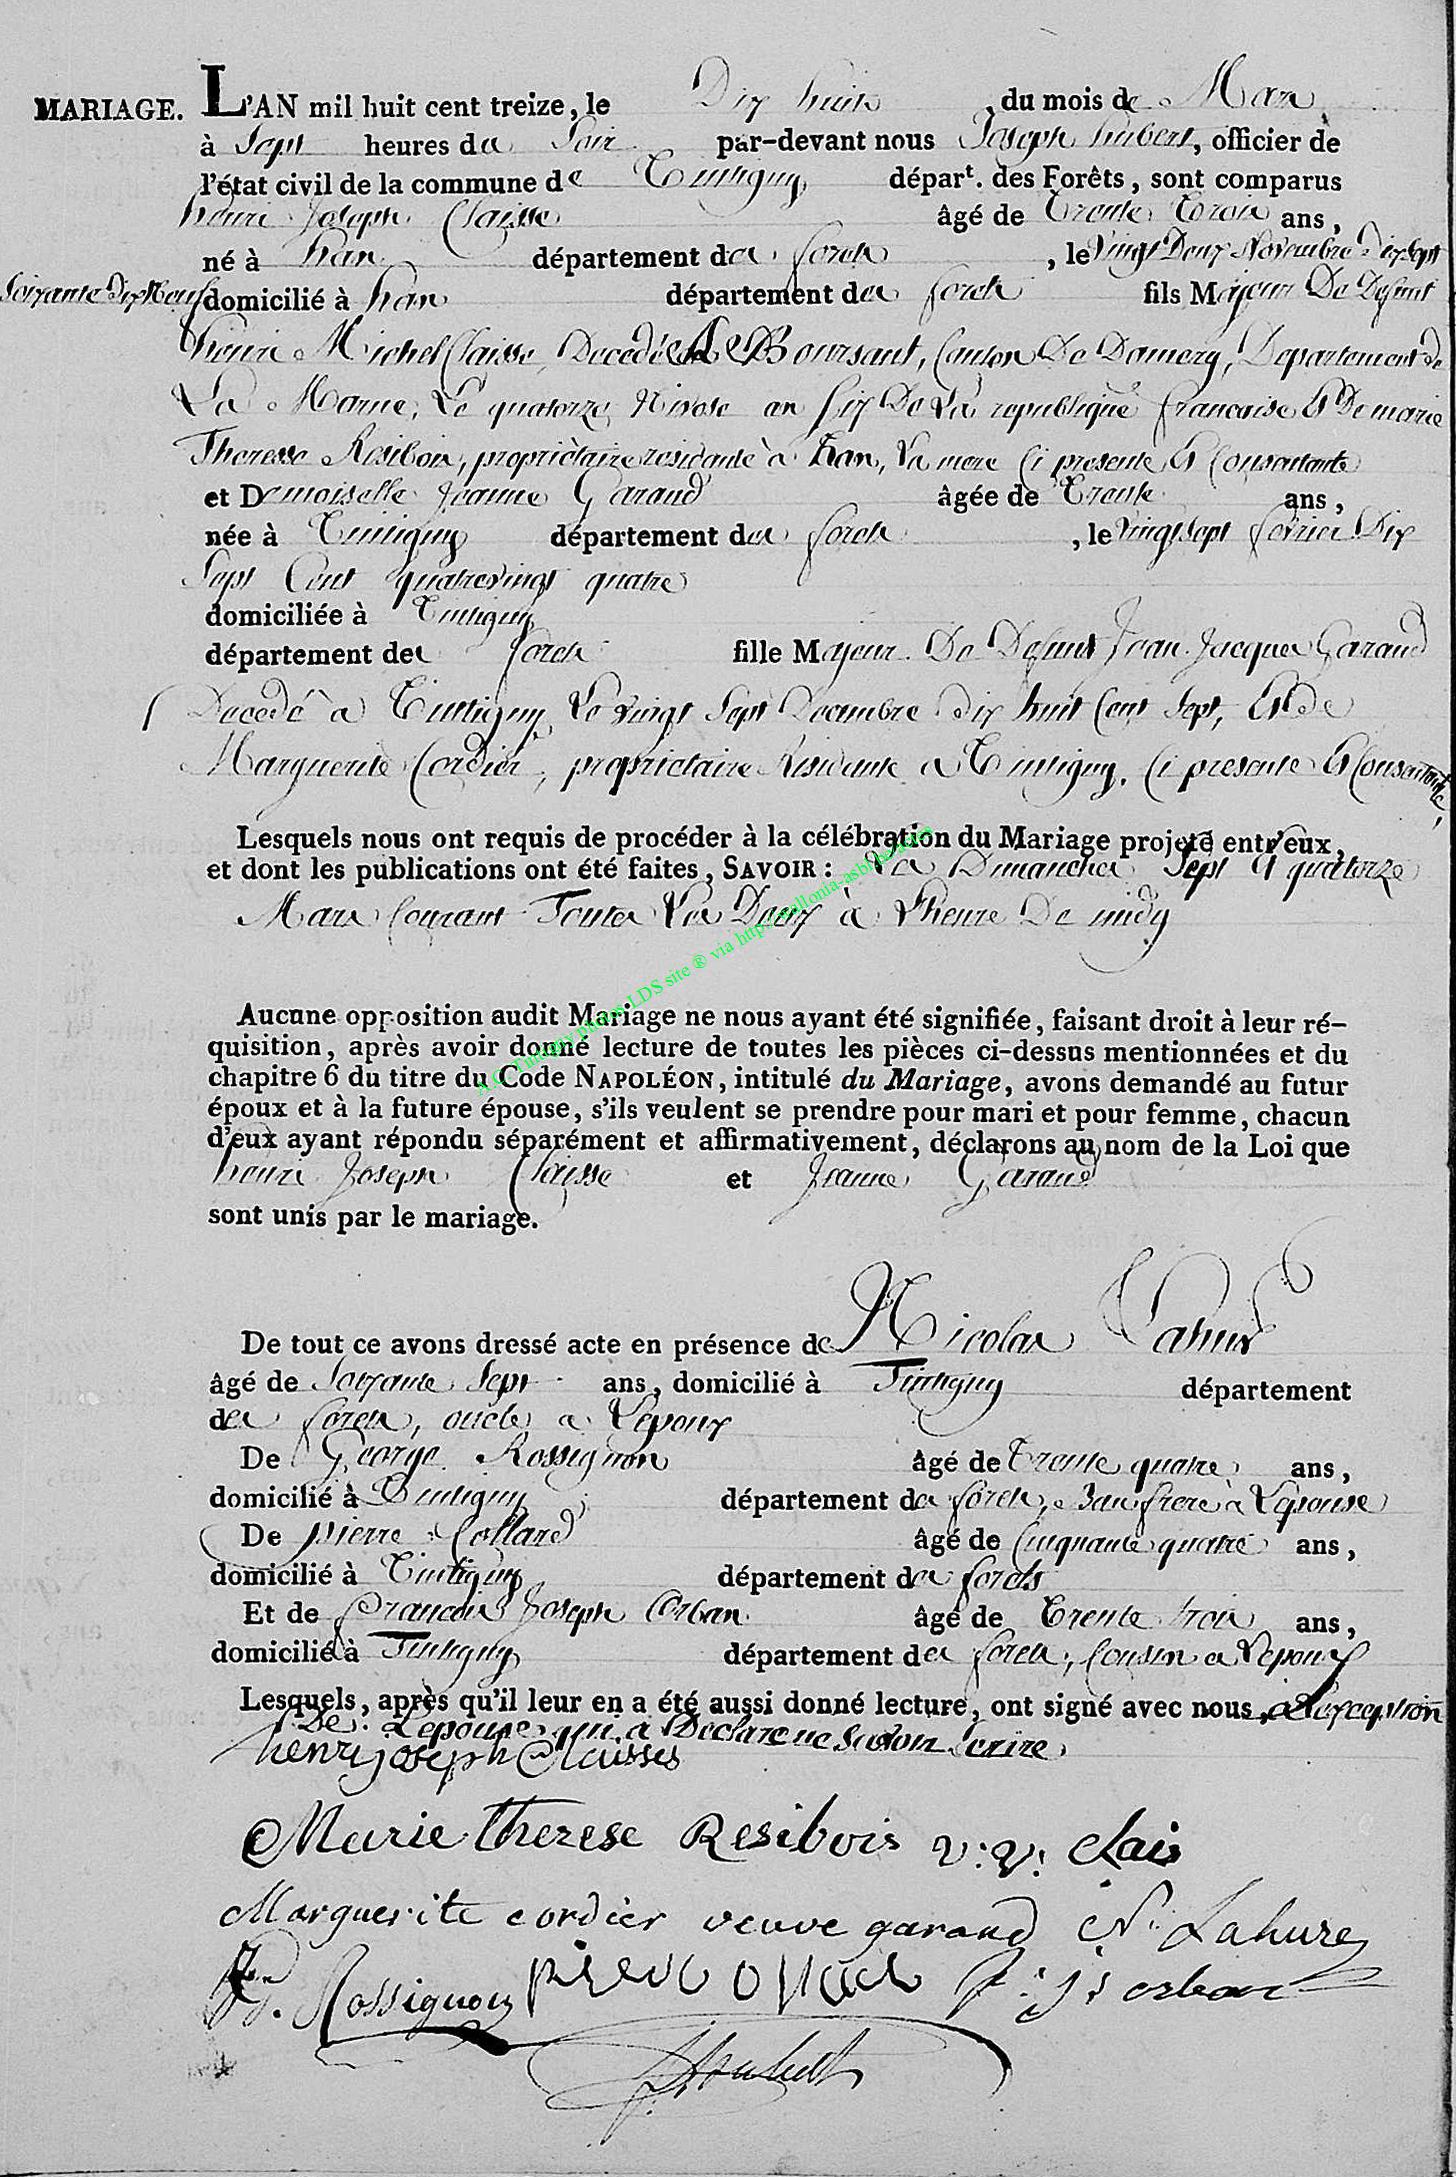 MARIAGE. L'AN mil huit cent treize, le Dix huit, du mois de Mars
à Sept heures du Soir par-devant nous Joseph hubert, officier de
l'état civil de la commune de Tintigny départ. des Forêts, sont comparus
henri Joseph Claisse âgé de Trente Trois ans,
né à han département des forets, le Vingt Deux Novembre dix Sept
Soixante dix Neuf domicilié à han département des forets fils Majeur De Defunt
henri Michel Claisse, Decedé à Boursaut, Canton De Damery, Departement de
La Marne, Le quatorze Nivose an Six De La republique francaise Et De marie
Theresse Resibois, propriètaire residante à han, La mere Ci presente Et Consentante
et Demoiselle Jeanne Garand âgée de Trente ans,
née à Tintigny département des forets, le Vingt Sept fevrier Dix
Sept Cent quatrevingt quatre
domiciliée à Tintigny
département des forets fille Majeur De Defunt Jean Jacques Garand
Decedé à Tintigny Le vingt Sept Decembre dix huit Cent Sept, Et de
Marguerite Cordier, proprietaire Residante a Tintigny, Ci presente Et Consentante,
Lesquels nous ont requis de procéder à la célébration du Mariage projeté entr'eux,
et dont les publications ont été faites, SAVOIR : Les Dimanches Sept Et quatorze
Mars Courant Toutes Les Deux à L'heure De midy
Aucune opposition audit Mariage ne nous ayant été signifiée, faisant droit à leur ré-
quisition, après avoir donné lecture de toutes les pièces ci-dessus mentionnées et du
chapitre 6 du titre du Code NAPOLÉON, intitulé du Mariage, avons demandé au futur
époux et à la future épouse, s'ils veulent se prendre pour mari et pour femme, chacun
d'eux ayant répondu séparément et affirmativement, déclarons au nom de la Loi que
henri Joseph Claisse et Jeanne Garand
sont unis par le mariage.
De tout ce avons dressé acte en présence de Nicolas Lahur
âgé de Soixante Sept ans, domicilié à Tintigny département
des forets, oncle a L'epoux
De George Rossignon âgé de Trente quatre ans,
domicilié à Tintigny département des forets, Baufrere à L'epouse
De pierre Collard âgé de Cinquante quatre ans,
domicilié à Tintigny département des forets
Et de francois Joseph Orban âgé de Trente trois ans,
domicilié à Tintigny département des forets, Cousin a L'epoux
Lesquels, après qu'il leur en a été aussi donné lecture, ont signé avec nous, a L'exception
De L'epouse qui a Declare ne Savoir Ecrire
henry joseph Claisses
Marie therese Resibois v:v: clais
Marguerite cordier veuve garand N: Lahure
Rossignon pierre collard f: j: orban
J Hubert
A.C. Tintigny photos LDS site ® via http://wallonia-asbl.be/actes